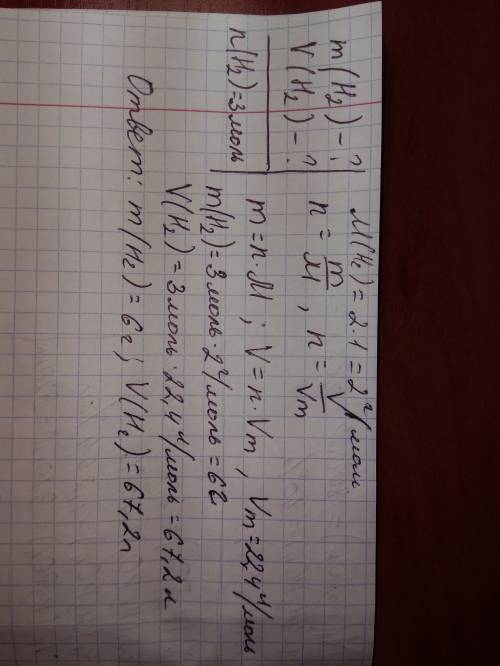 m(H₂) - ?
V(H₂) - ?
n(H₂) = 3 моль
M(H₂) = 2·1 = 2 г/моль
n = m/M, n = V/Vm
m = n·M; V = n·Vm, Vm = 22,4 л/моль
m(H₂) = 3 моль·2 г/моль = 6г
V(H₂) = 3 моль·22,4 л/моль = 67,2 л
Ответ: m(H₂) = 6г; V(H₂) = 67,2л